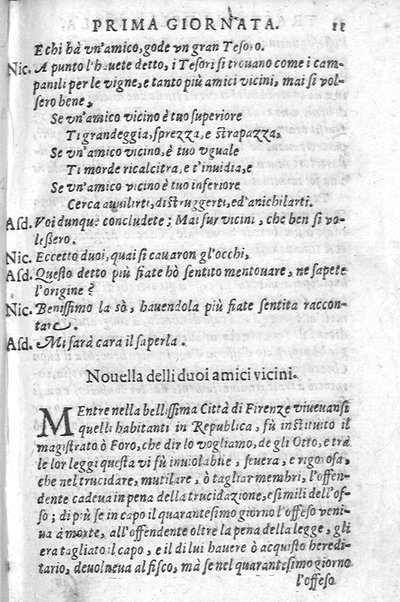 PRIMA GIORNATA. 11
E chi hà vn'amico, gode vn gran Tesoro.
Nic. A punto l'hauete detto, i Tesori si trouano come i cam-
panili per le vigne, e tanto più amici vicini, mai si vol-
sero bene,
Se vn'amico vicino è tuo superiore
Ti grandeggia, sprezza, e strapazza,
Se vn'amico vicino, è tuo vguale
Ti morde ricalcitra, e t'inuidia, e
Se vn'amico vicino è tuo inferiore
Cerca auilirti, distruggerti, ed'anichilarti.
Asd. Voi dunque concludete; Mai fur vicini, che ben si vo-
lessero.
Nic. Eccetto duoi, quai si cauaron gl'occhi,
Asd. Questo detto più fiate hò sentito mentouare, ne sapete
l'origine?
Nic. Benissimo la sò, hauendola più fiate sentita raccon-
tare.
Asd. Mi sarà cara il saperla.
Nouella delli duoi amici vicini.
MEntre nella bellissima Città di Firenze viueuansi
quelli habitanti in Republica, fù instituito il
magistrato ò Foro, che dir lo vogliamo, de gli Otto, e trà
le lor leggi questa vi fù inuiolabile, seuera, e rigorosa,
che nel trucidare, mutilare, ò tagliar membri, l'offen-
dente cadeua in pena della trucidazione, e simili dell'of-
so; di più se in capo il quarantesimo giorno l'offeso veni-
ua à morte, all'offendente oltre la pena della legge, gli
era tagliato il capo, e il di lui hauere ò acquisto heredi-
tario, deuolueua al fisco, mà se nel quarantesimo giorno
l'offeso